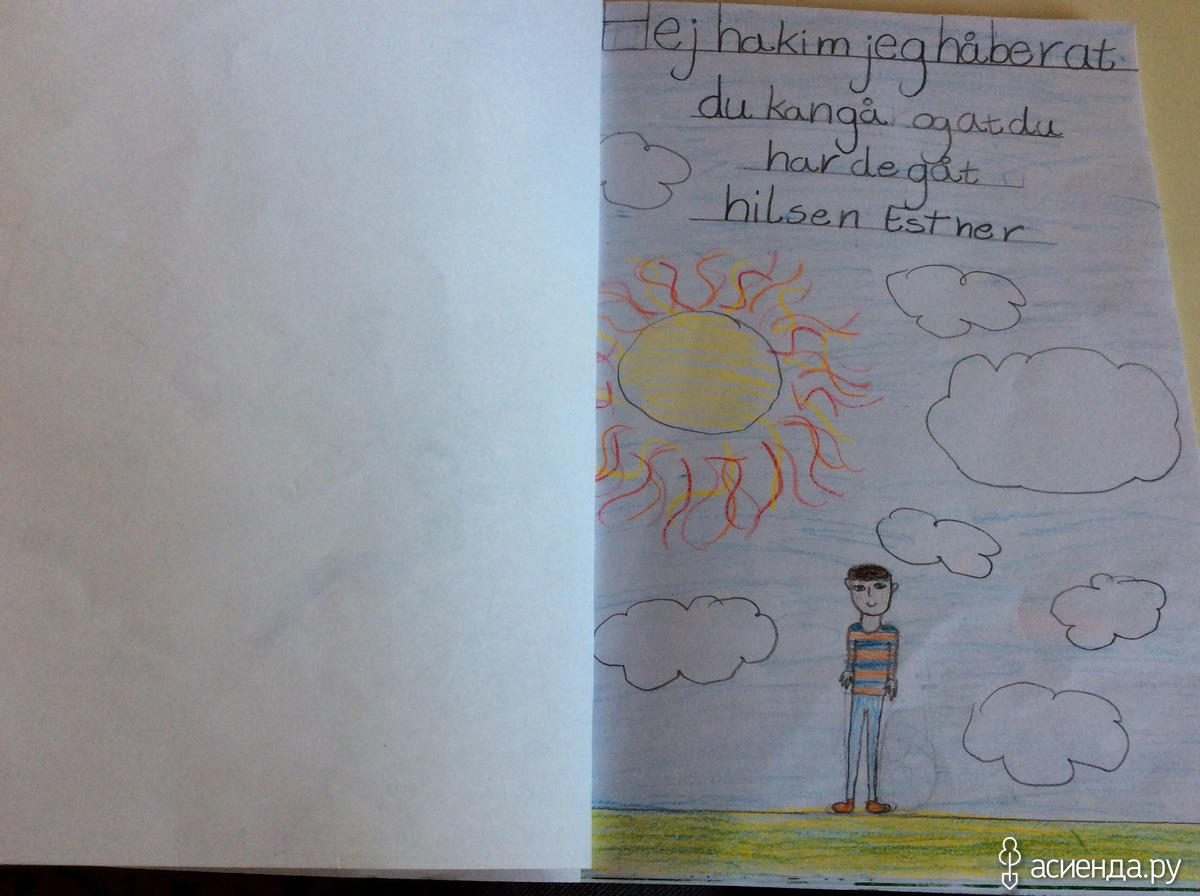 Hej hakim jeg håber at
du kan gå og at du
har de gåt
hilsen Esther
асиенда.ру